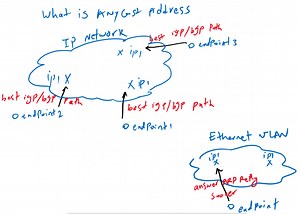 What is Anycast Address
IP Network
best igp/bgp path
x ip1
o endpoint3
ip1 x
x ip1
best igp/bgp path
best igp/bgp path
o endpoint2
o endpoint1
Ethernet VLAN
ip1
x
ip1
x
answer ARP reply
sooner
o endpoint